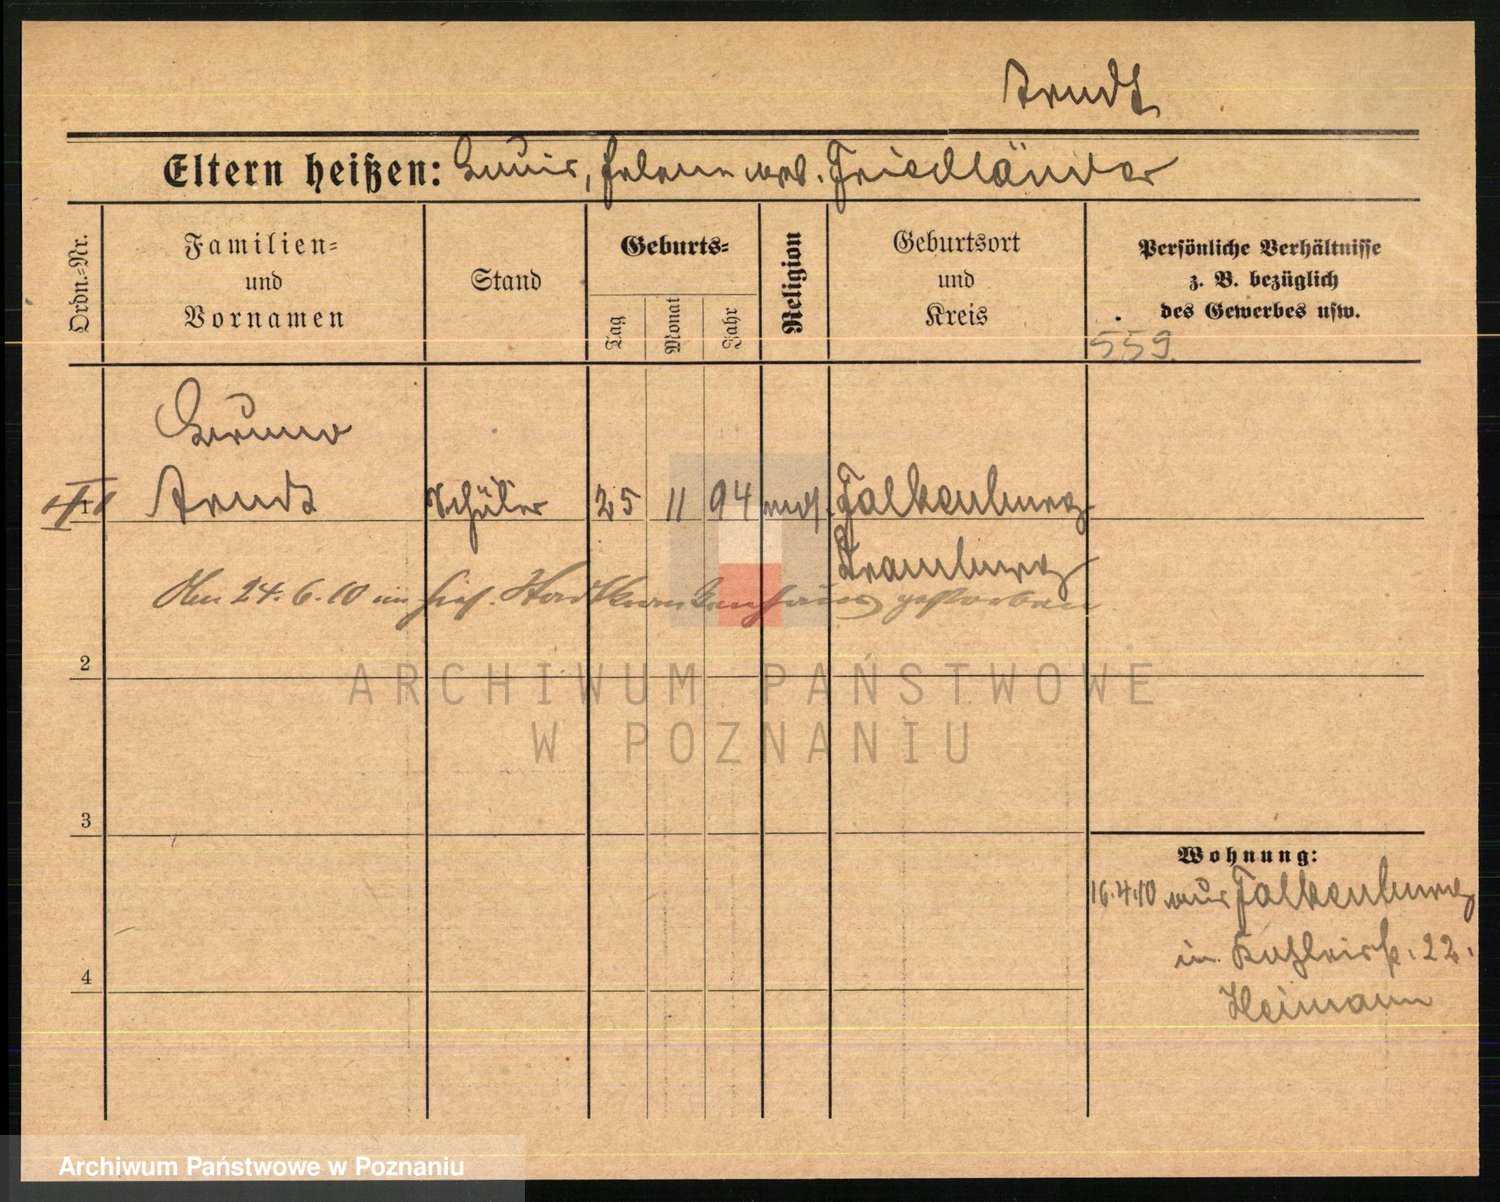 Arndt
Eltern heißen: Louis, Helene geb. Friedländer
Ordn.-Nr.
Familien-
und
Vornamen
Stand
Geburts-
Tag
Monat
Jahr
Religion
Geburtsort
und
Kreis
Persönliche Verhältnisse
z. B. bezüglich
des Gewerbes usw.
559.
Bruno
1 Arndt Schüler 25 11 94 mos. Falkenburg
Dramburg
Am 24.6.10 im hies. Stadtkrankenhaus gestorben
2
3
4
Wohnung:
16.4.10 aus Falkenburg
in 22.
Heimann
ARCHIWUM PAŃSTWOWE
W POZNANIU
Archiwum Państwowe w Poznaniu